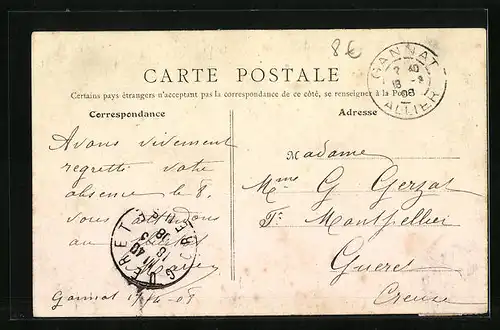 86
GANNAT
ALLIER
CARTE POSTALE
Certains pays étrangers n'acceptant pas la correspondance de ce côté, se renseigner à la Poste
Correspondance
Adresse
Avons vivement
regretté votre
absence le 8.
vous attendons
au
Gannat
GUERET
CREUSE
Madame
Mme G Gerzat
Montpellier
Gueret
Creuse